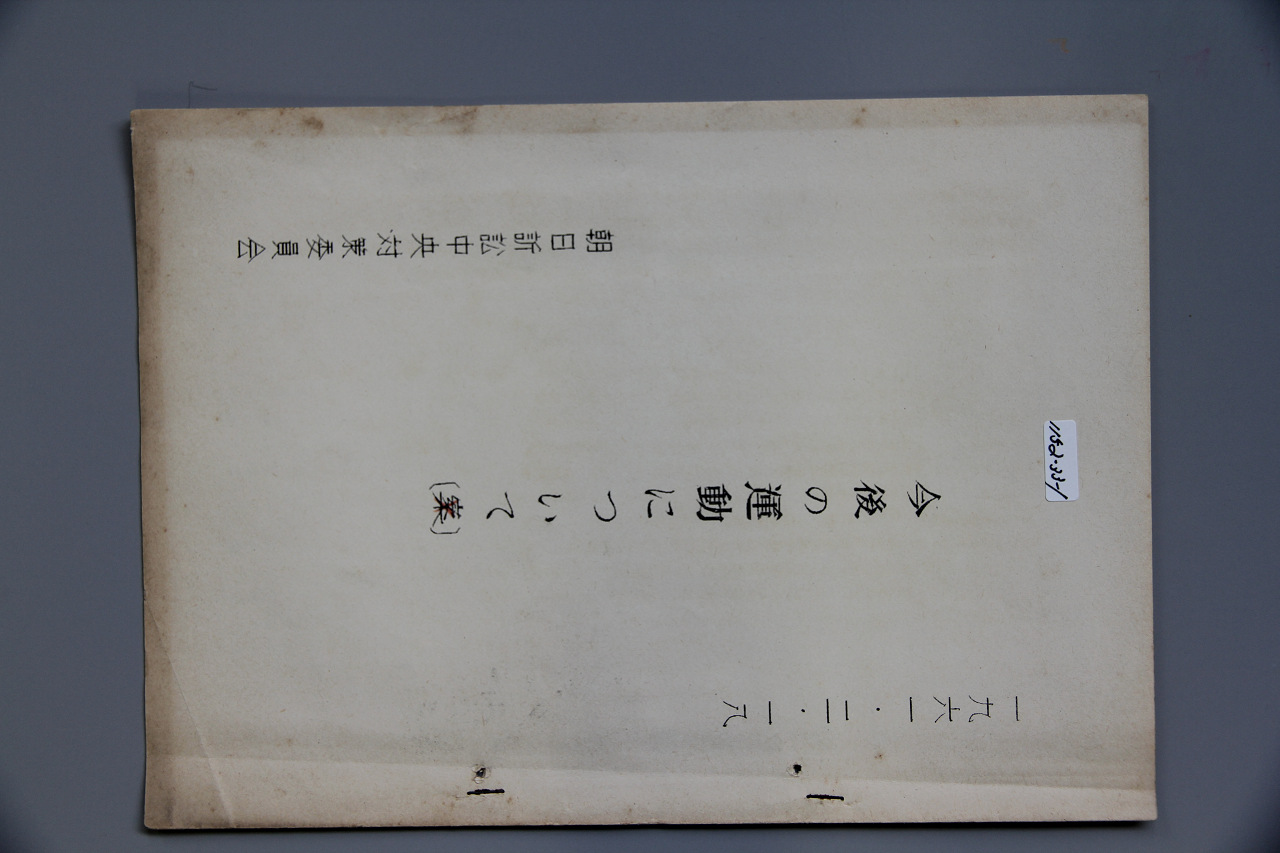 1152-33-1
一九六一・二・一八
今後の運動について（案）
朝日訴訟中央対策委員会